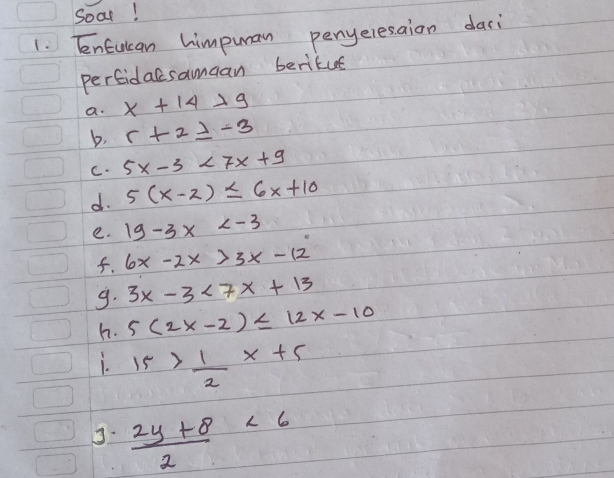 Soal !
1. Tentukan himpunan penyelesaian dari
pertidaksamaan berikut
a. x + 14 > 9
b. r + 2 ≥ -3
c. 5x - 3 < 7x + 9
d. 5 (x - 2) ≤ 6x + 10
e. 19 - 3x < -3
f. 6x - 2x > 3x - 12
g. 3x - 3 < 7x + 13
h. 5 (2x - 2) ≤ 12x - 10
i. 15 > 1/2 x + 5
j. (2y + 8)/2 < 6